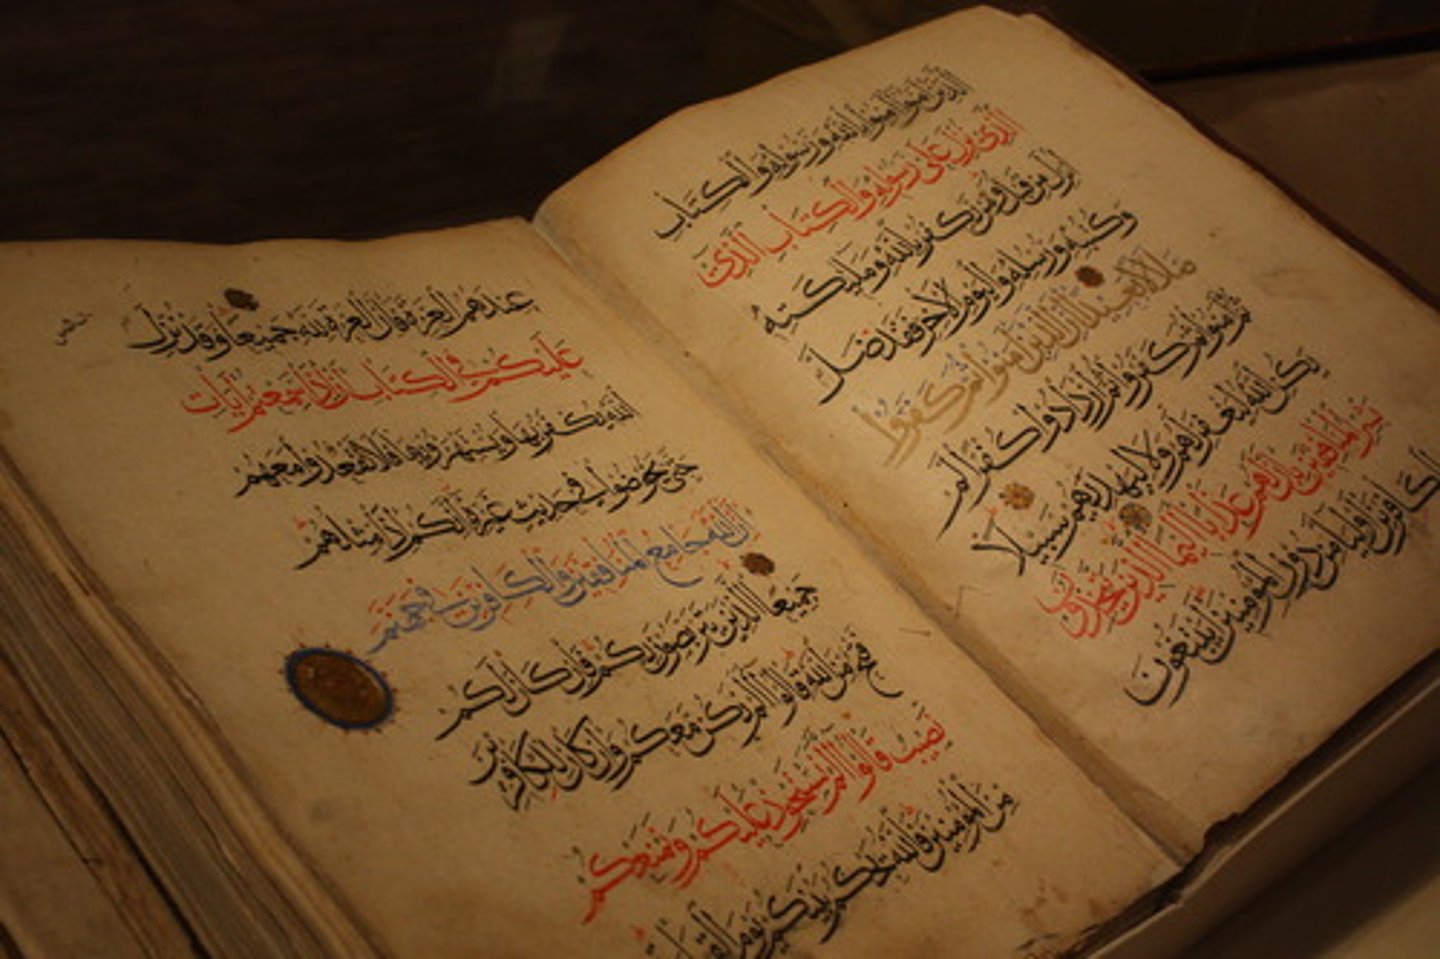 الذين آمنوا آمنوا بالله ورسوله والكتاب
الذي نزل على رسوله والكتاب الذي
أنزل من قبل ومن يكفر بالله وملائكته
وكتبه ورسله واليوم الآخر فقد ضل
ضلالا بعيدا إن الذين آمنوا ثم كفروا
ثم آمنوا ثم كفروا ثم ازدادوا كفرا لم
يكن الله ليغفر لهم ولا ليهديهم سبيلا
بشر المنافقين بأن لهم عذابا أليما الذين يتخذون
الكافرين أولياء من دون المؤمنين أيبتغون
عندهم العزة فإن العزة لله جميعا وقد نزل
عليكم في الكتاب أن إذا سمعتم آيات
الله يكفر بها ويستهزأ بها فلا تقعدوا معهم
حتى يخوضوا في حديث غيره إنكم إذا مثلهم
إن الله جامع المنافقين والكافرين في جهنم
جميعا الذين يتربصون بكم فإن كان لكم
فتح من الله قالوا ألم نكن معكم وإن كان للكافرين
نصيب قالوا ألم نستحوذ عليكم ونمنعكم
من المؤمنين فالله يحكم بينكم يوم القيامة